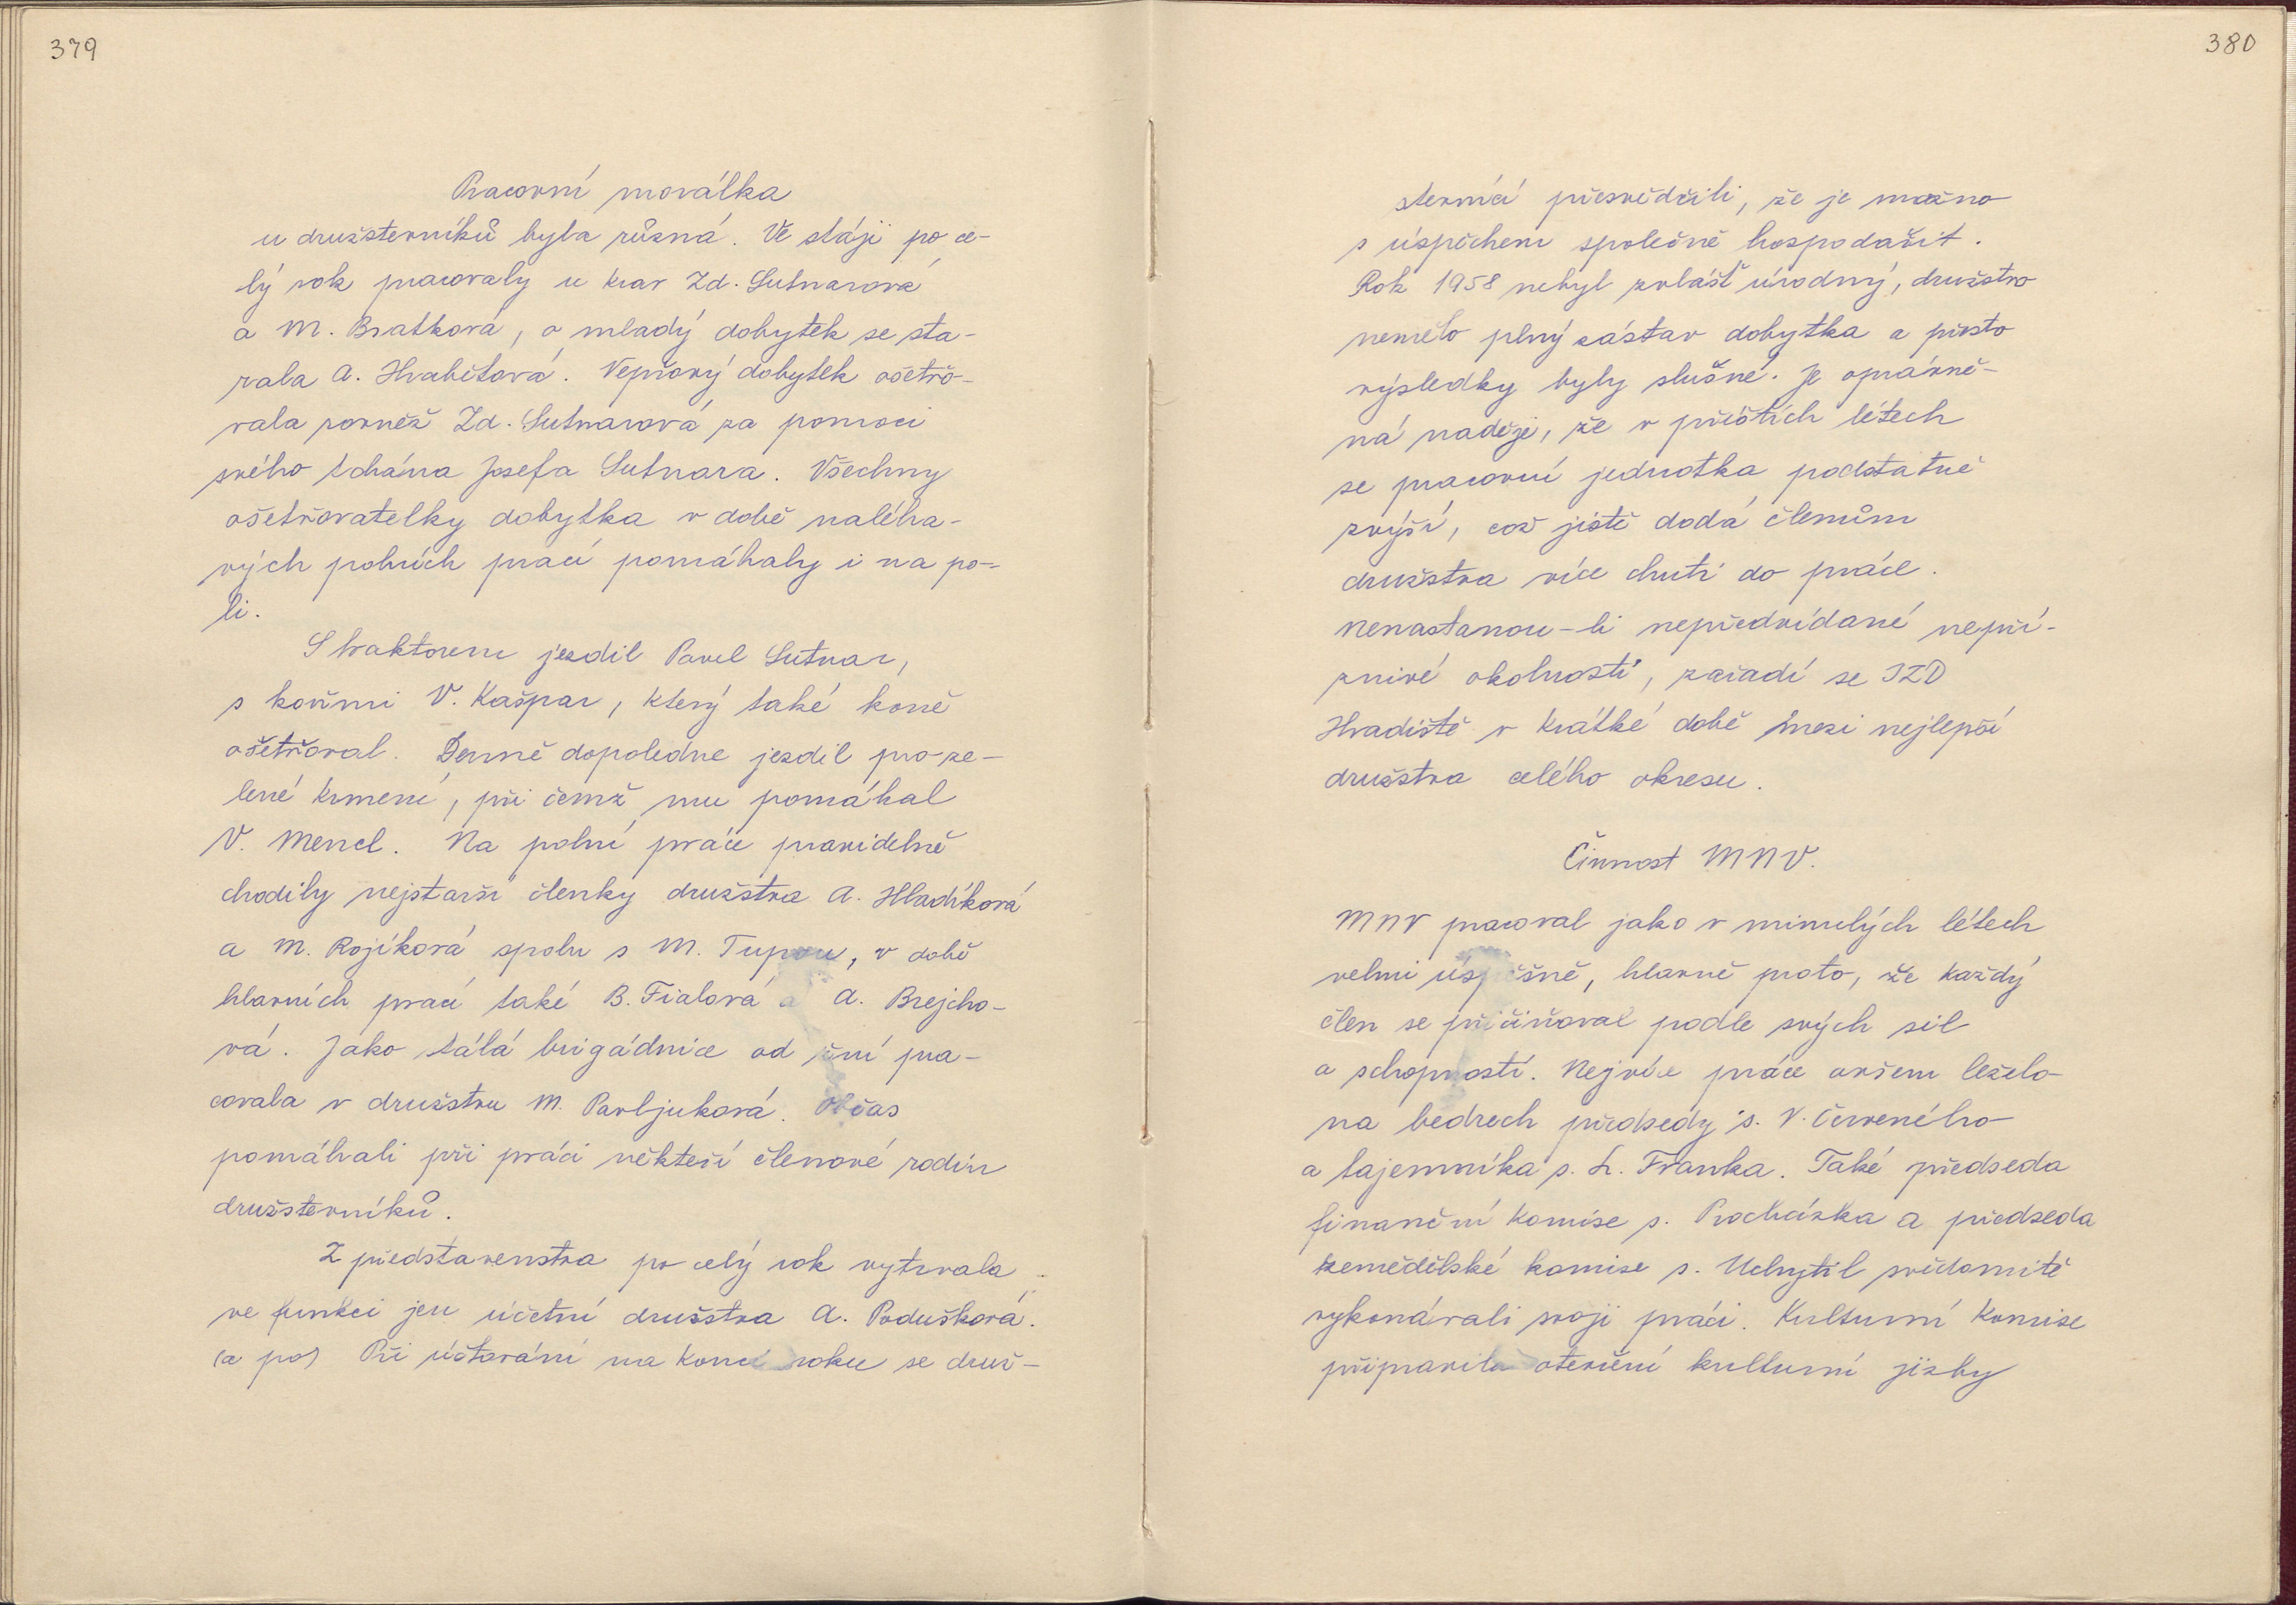 379
Pracovní morálka
u družsterníků byla různá. Ve stáji po ce-
lý rok pracovaly u krav Zd. Sutnarová
a M. Bratková, o mladý dobytek se sta-
rala A. Hrabětová. Vepřový dobytek ošetřo-
vala rovněž Zd. Sutnarová za pomoci
svého tchána Josefa Sutnara. Všechny
ošetřovatelky dobytka v době naléha-
vých polních prací pomáhaly i na po-
li.
S traktorem jezdil Pavel Sutnar,
s koňmi V. Kašpar, který také koně
ošetřoval. Denně dopoledne jezdil pro ze-
lené krmení, při čemž mu pomáhal
V. Mencl. Na polní práce pravidelně
chodily nejstarší členky družstva A. Hladíková
a M. Rojíková spolu s M. Tupou, v době
hlavních prací také B. Fialová a A. Brejcho-
vá. Jako stálá brigádnice od žní pra-
covala v družstvu M. Pavljuková. Občas
pomáhali při práci někteří členové rodin
družsterníků.
Z představenstva po celý rok vytrvala
ve funkci jen účetní družstva A. Podušková.
(a po) Při účtování na konci roku se druž-
380
sterníci přesvědčili, že je možno
s úspěchem společně hospodařit.
Rok 1958 nebyl zvlášť úrodný, družstvo
nemělo plný zástav dobytka a přesto
výsledky byly slušné. Je oprávně-
ná naděje, že v příštích létech
se pracovní jednotka podstatně
zvýší, což jistě dodá členům
družstva více chuti do práce.
Nenastanou-li nepředvídané nepří-
znivé okolnosti, zařadí se JZD
Hradiště v krátké době mezi nejlepší
družstva celého okresu.
Činnost MNV.
MNV pracoval jako v minulých létech
velmi úspěšně, hlavně proto, že každý
člen se přičiňoval podle svých sil
a schopností. Nejvíce práce ovšem leželo
na bedrech předsedy s. V. Červeného
a tajemníka s. L. Franka. Také předseda
finanční komise s. Procházka a předseda
zemědělské komise s. Uchytil svědomitě
vykonávali svoji práci. Kulturní komise
připravila otevření kulturní jizby